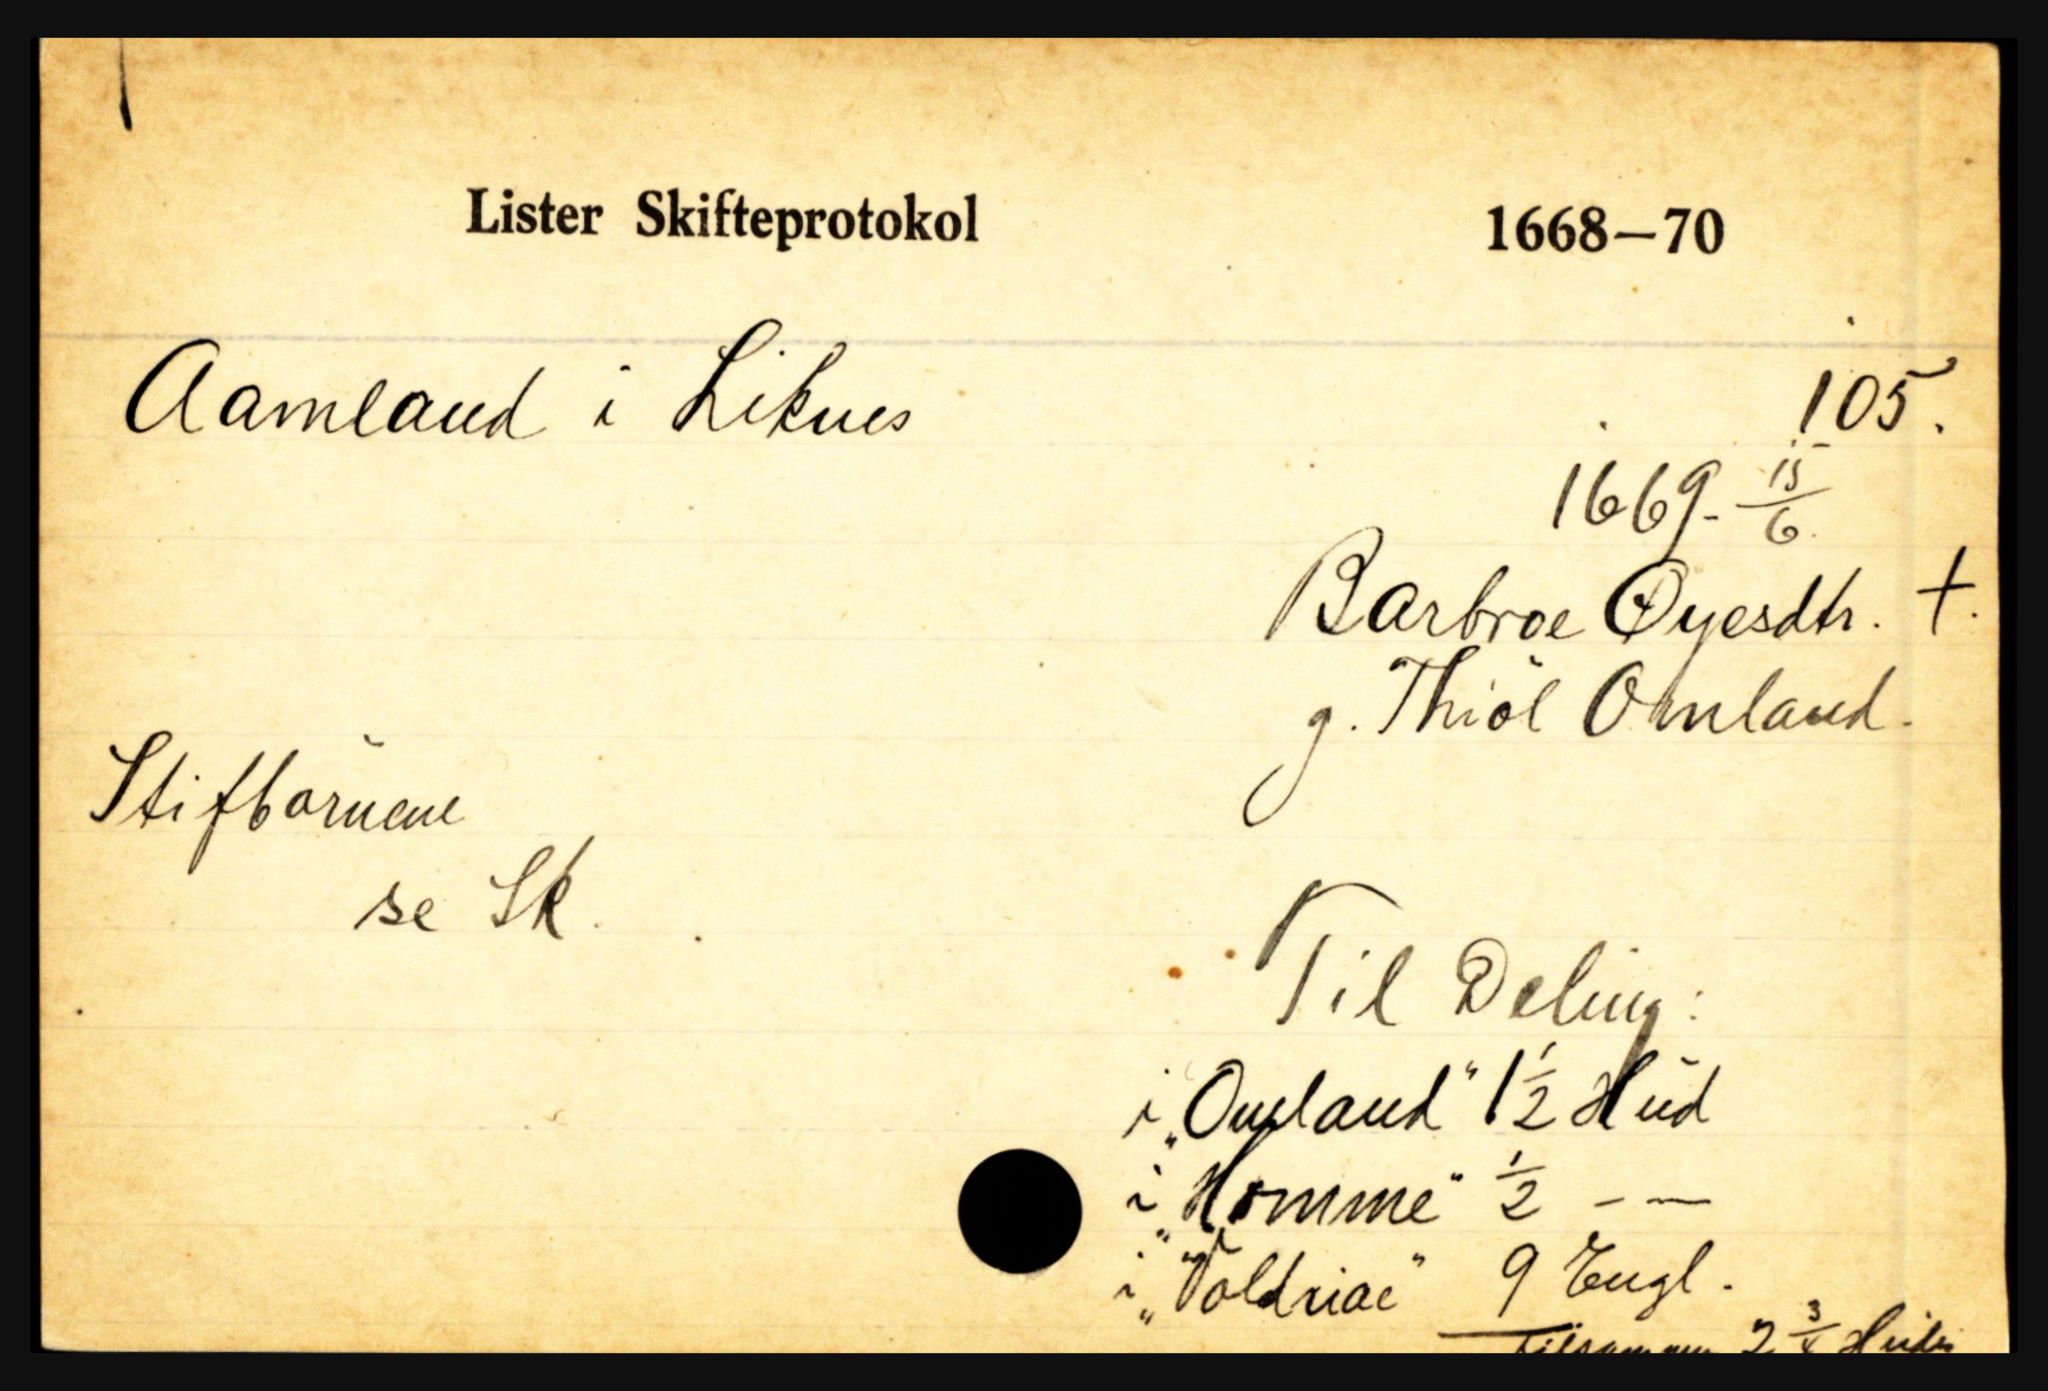 Lister Skifteprotokol 1668–70
Aamland i Liknes 105.
1669. 15/6.
Barbroe Øyesdtr. +.
g. Thiøl Omland.
Stifbørnene
se Sk.
Til Deling:
i „Omland" 1 1/2 Hŭd
i „Homme" 1/2 - —
i „Voldniae" 9 Engl.
Tilsammen 2 3/4 Huder